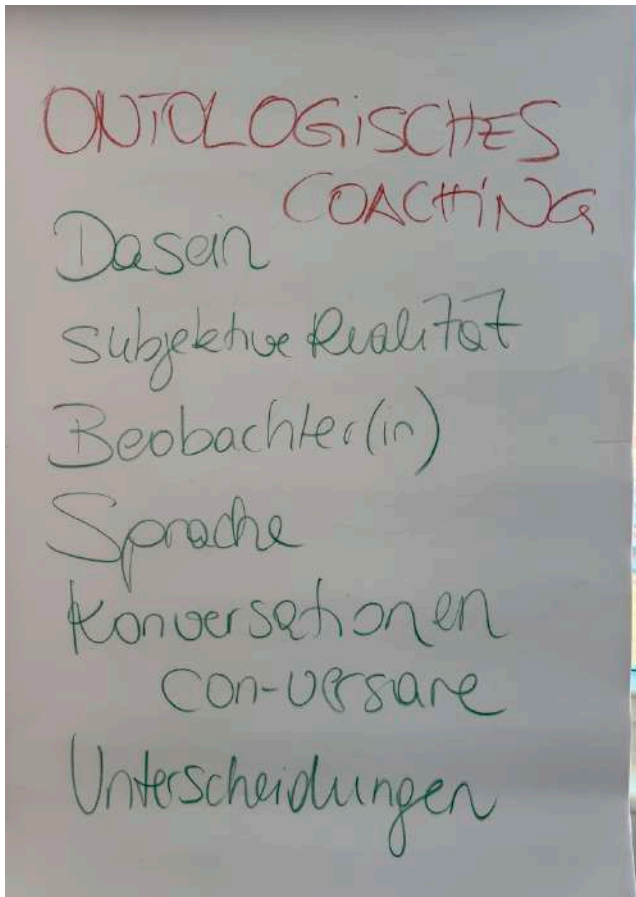 ONTOLOGISCHES
COACHING
Dasein
subjektive Realität
Beobachter(in)
Sprache
Konversationen
con-versare
Unterscheidungen